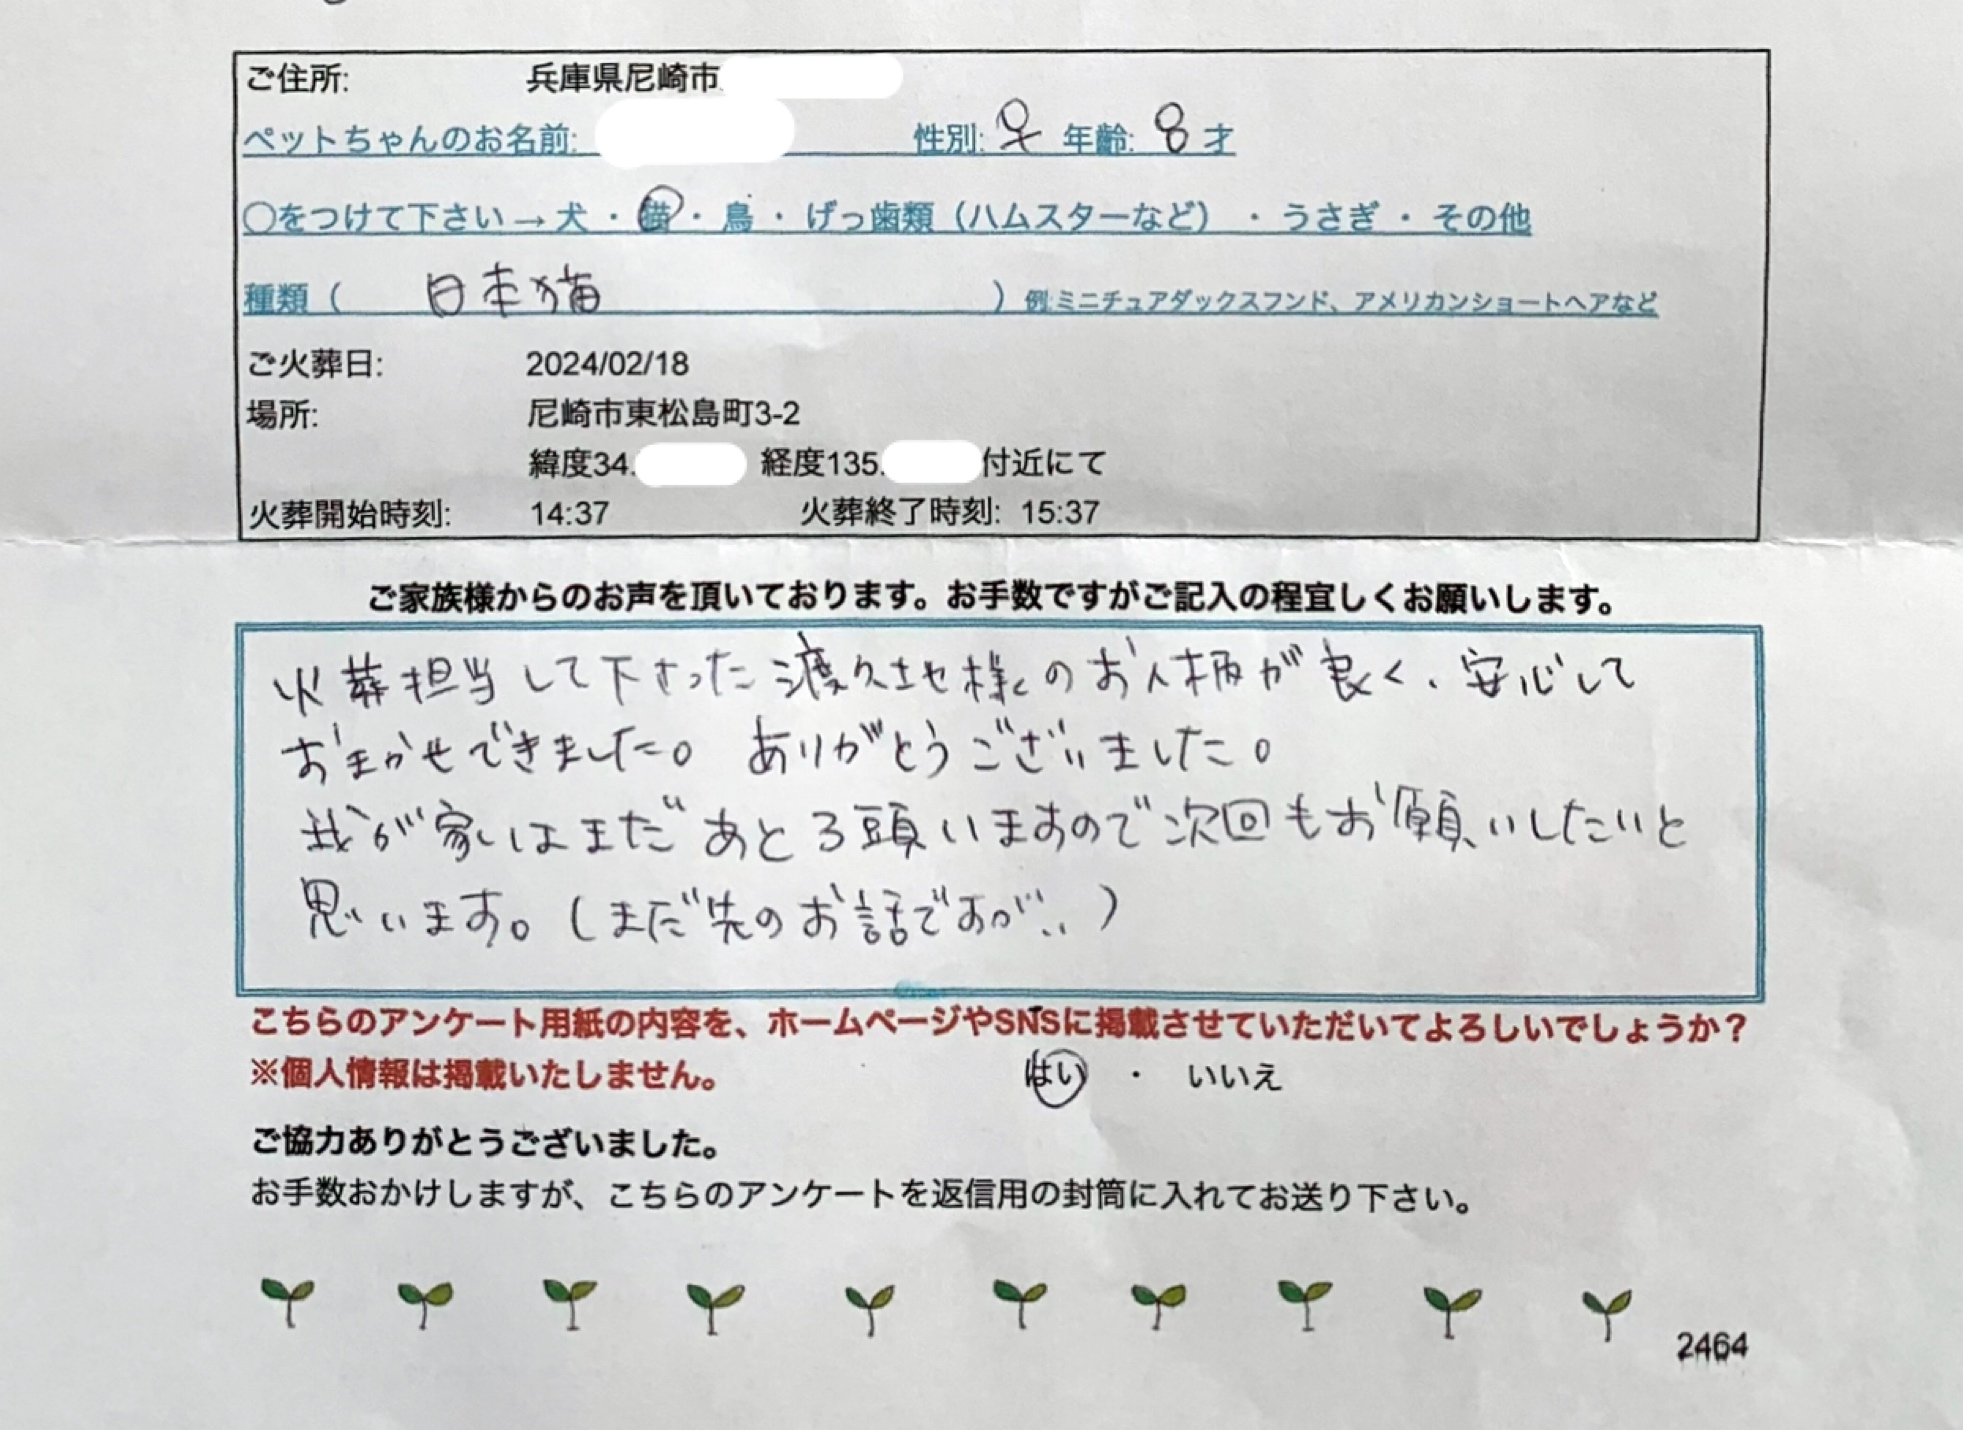 ご住所: 兵庫県尼崎市
ペットちゃんのお名前: 性別: ♀ 年齢: 8才
○をつけて下さい→犬・猫・鳥・げっ歯類（ハムスターなど）・うさぎ・その他
種類（ 日本猫 ）例:ミニチュアダックスフンド、アメリカンショートヘアなど
ご火葬日: 2024/02/18
場所: 尼崎市東松島町3-2
緯度34. 経度135. 付近にて
火葬開始時刻: 14:37 火葬終了時刻: 15:37
ご家族様からのお声を頂いております。お手数ですがご記入の程宜しくお願いします。
火葬担当して下さった渡久地様のお人柄が良く、安心して
おまかせできました。ありがとうございました。
我が家はまだあと3頭いますので次回もお願いしたいと
思います。（まだ先のお話ですが‥）
こちらのアンケート用紙の内容を、ホームページやSNSに掲載させていただいてよろしいでしょうか？
※個人情報は掲載いたしません。 はい ・ いいえ
ご協力ありがとうございました。
お手数おかけしますが、こちらのアンケートを返信用の封筒に入れてお送り下さい。
2464